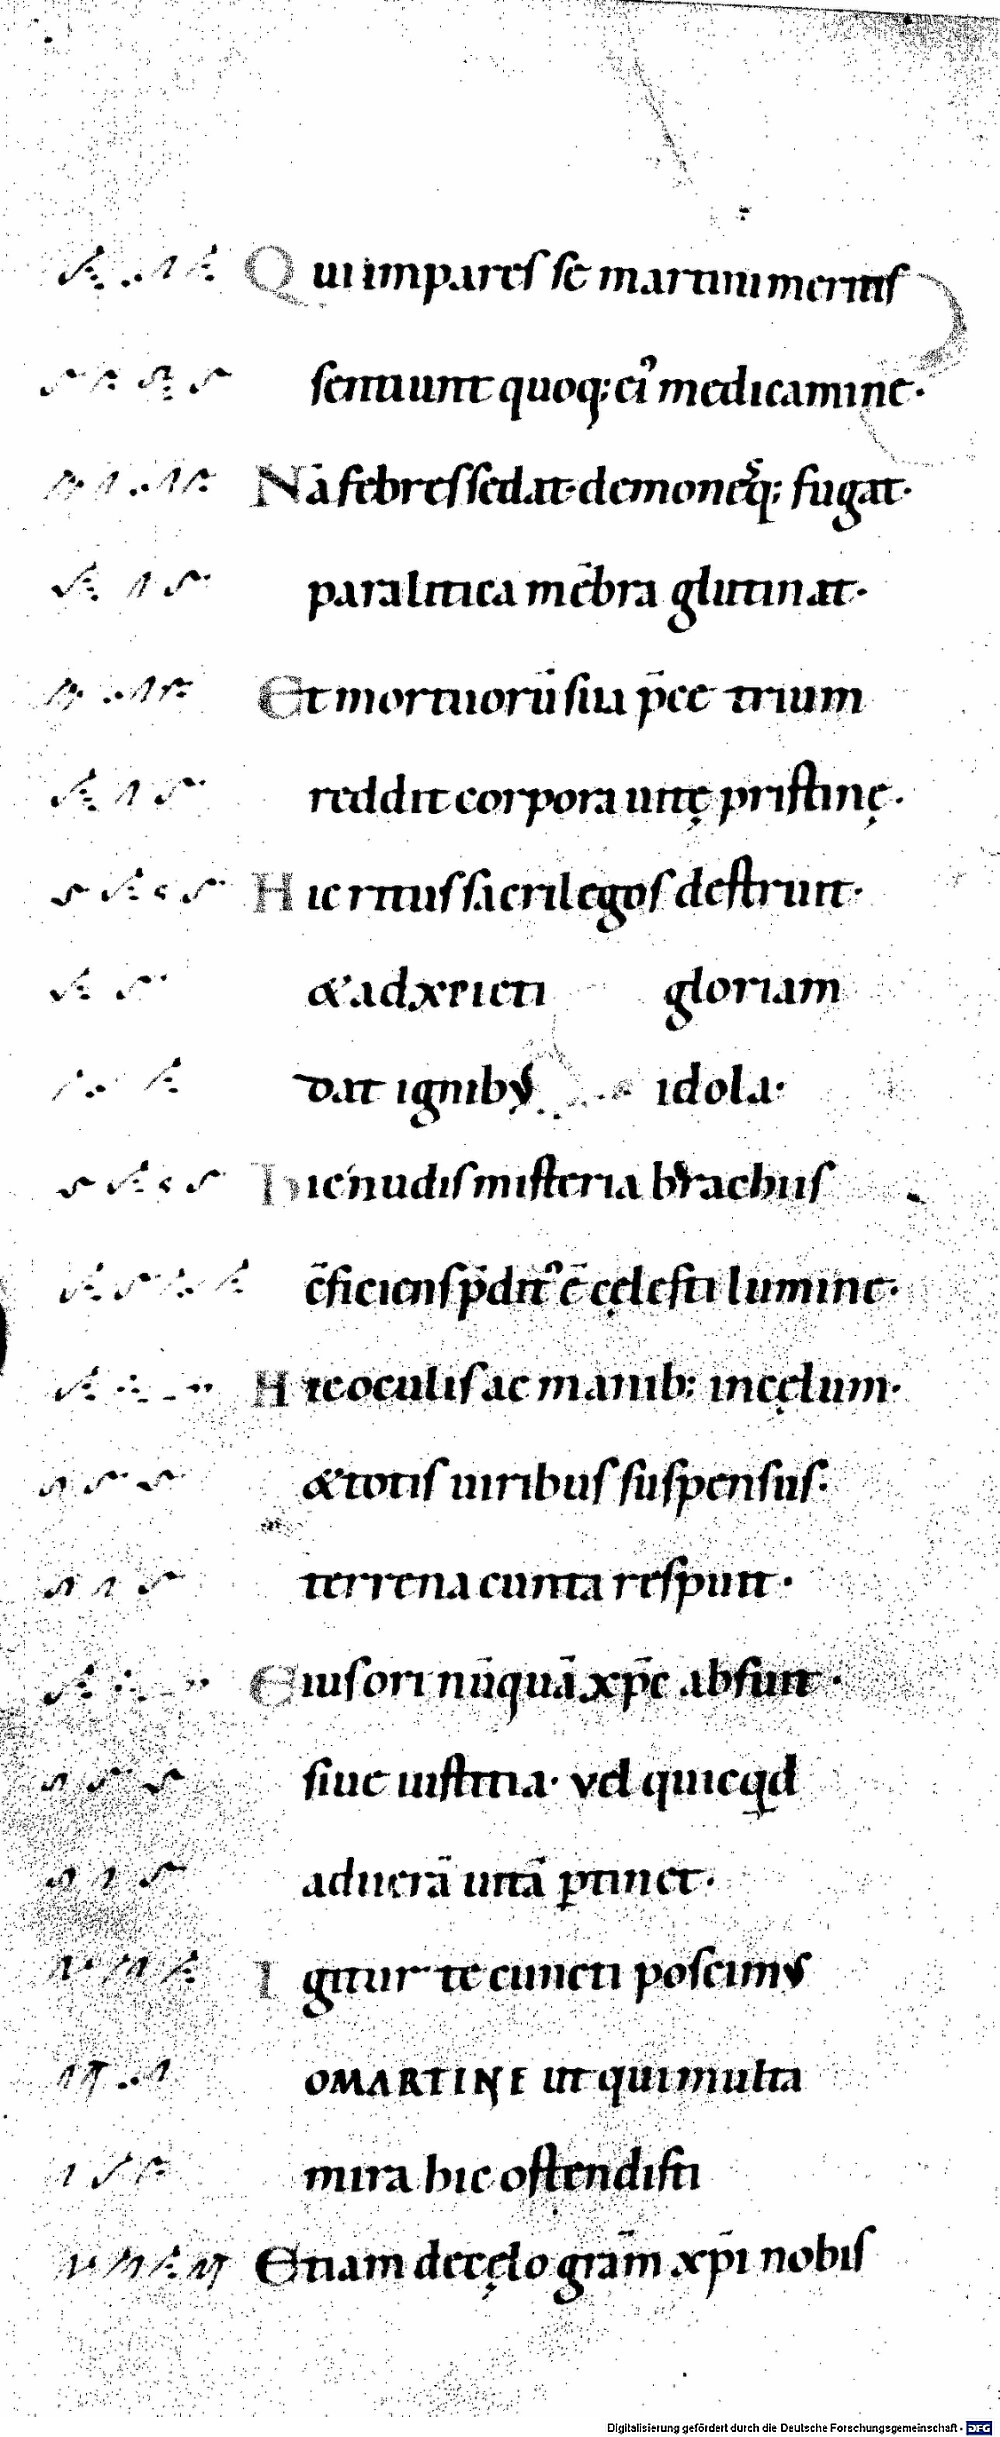 Qui impares se martini meritis
sentiunt quoq; ei᾿ medicamine·
Nā febres sedat· demonesq; fugat·
paralitica mēbra glutinat·
Et mortuorū sua p̄ce trium
reddit corpora uitę pristinę.
Hic ritus sacrilegos destruit·
& ad xpicti gloriam
dat ignibus idola·
hic nudis misteria brachiis
c̄ficiens p̄dit᾿ ē cęlesti lumine·
Hic oculis ac manib; in cęlum·
& totis uiribus suspensus·
terrena cunta respuit·
Eius ori nūquā xp̄c abfuit·
siue iustitia· vel quicq̣d
ad uerā uitā ꝑtinet·
Igitur te cuncti poscimus
O MARTINE ut qui multa
mira hic ostendisti
Etiam de cęlo grām xp̄i nobis
Digitalisierung gefördert durch die Deutsche Forschungsgemeinschaft - DFG